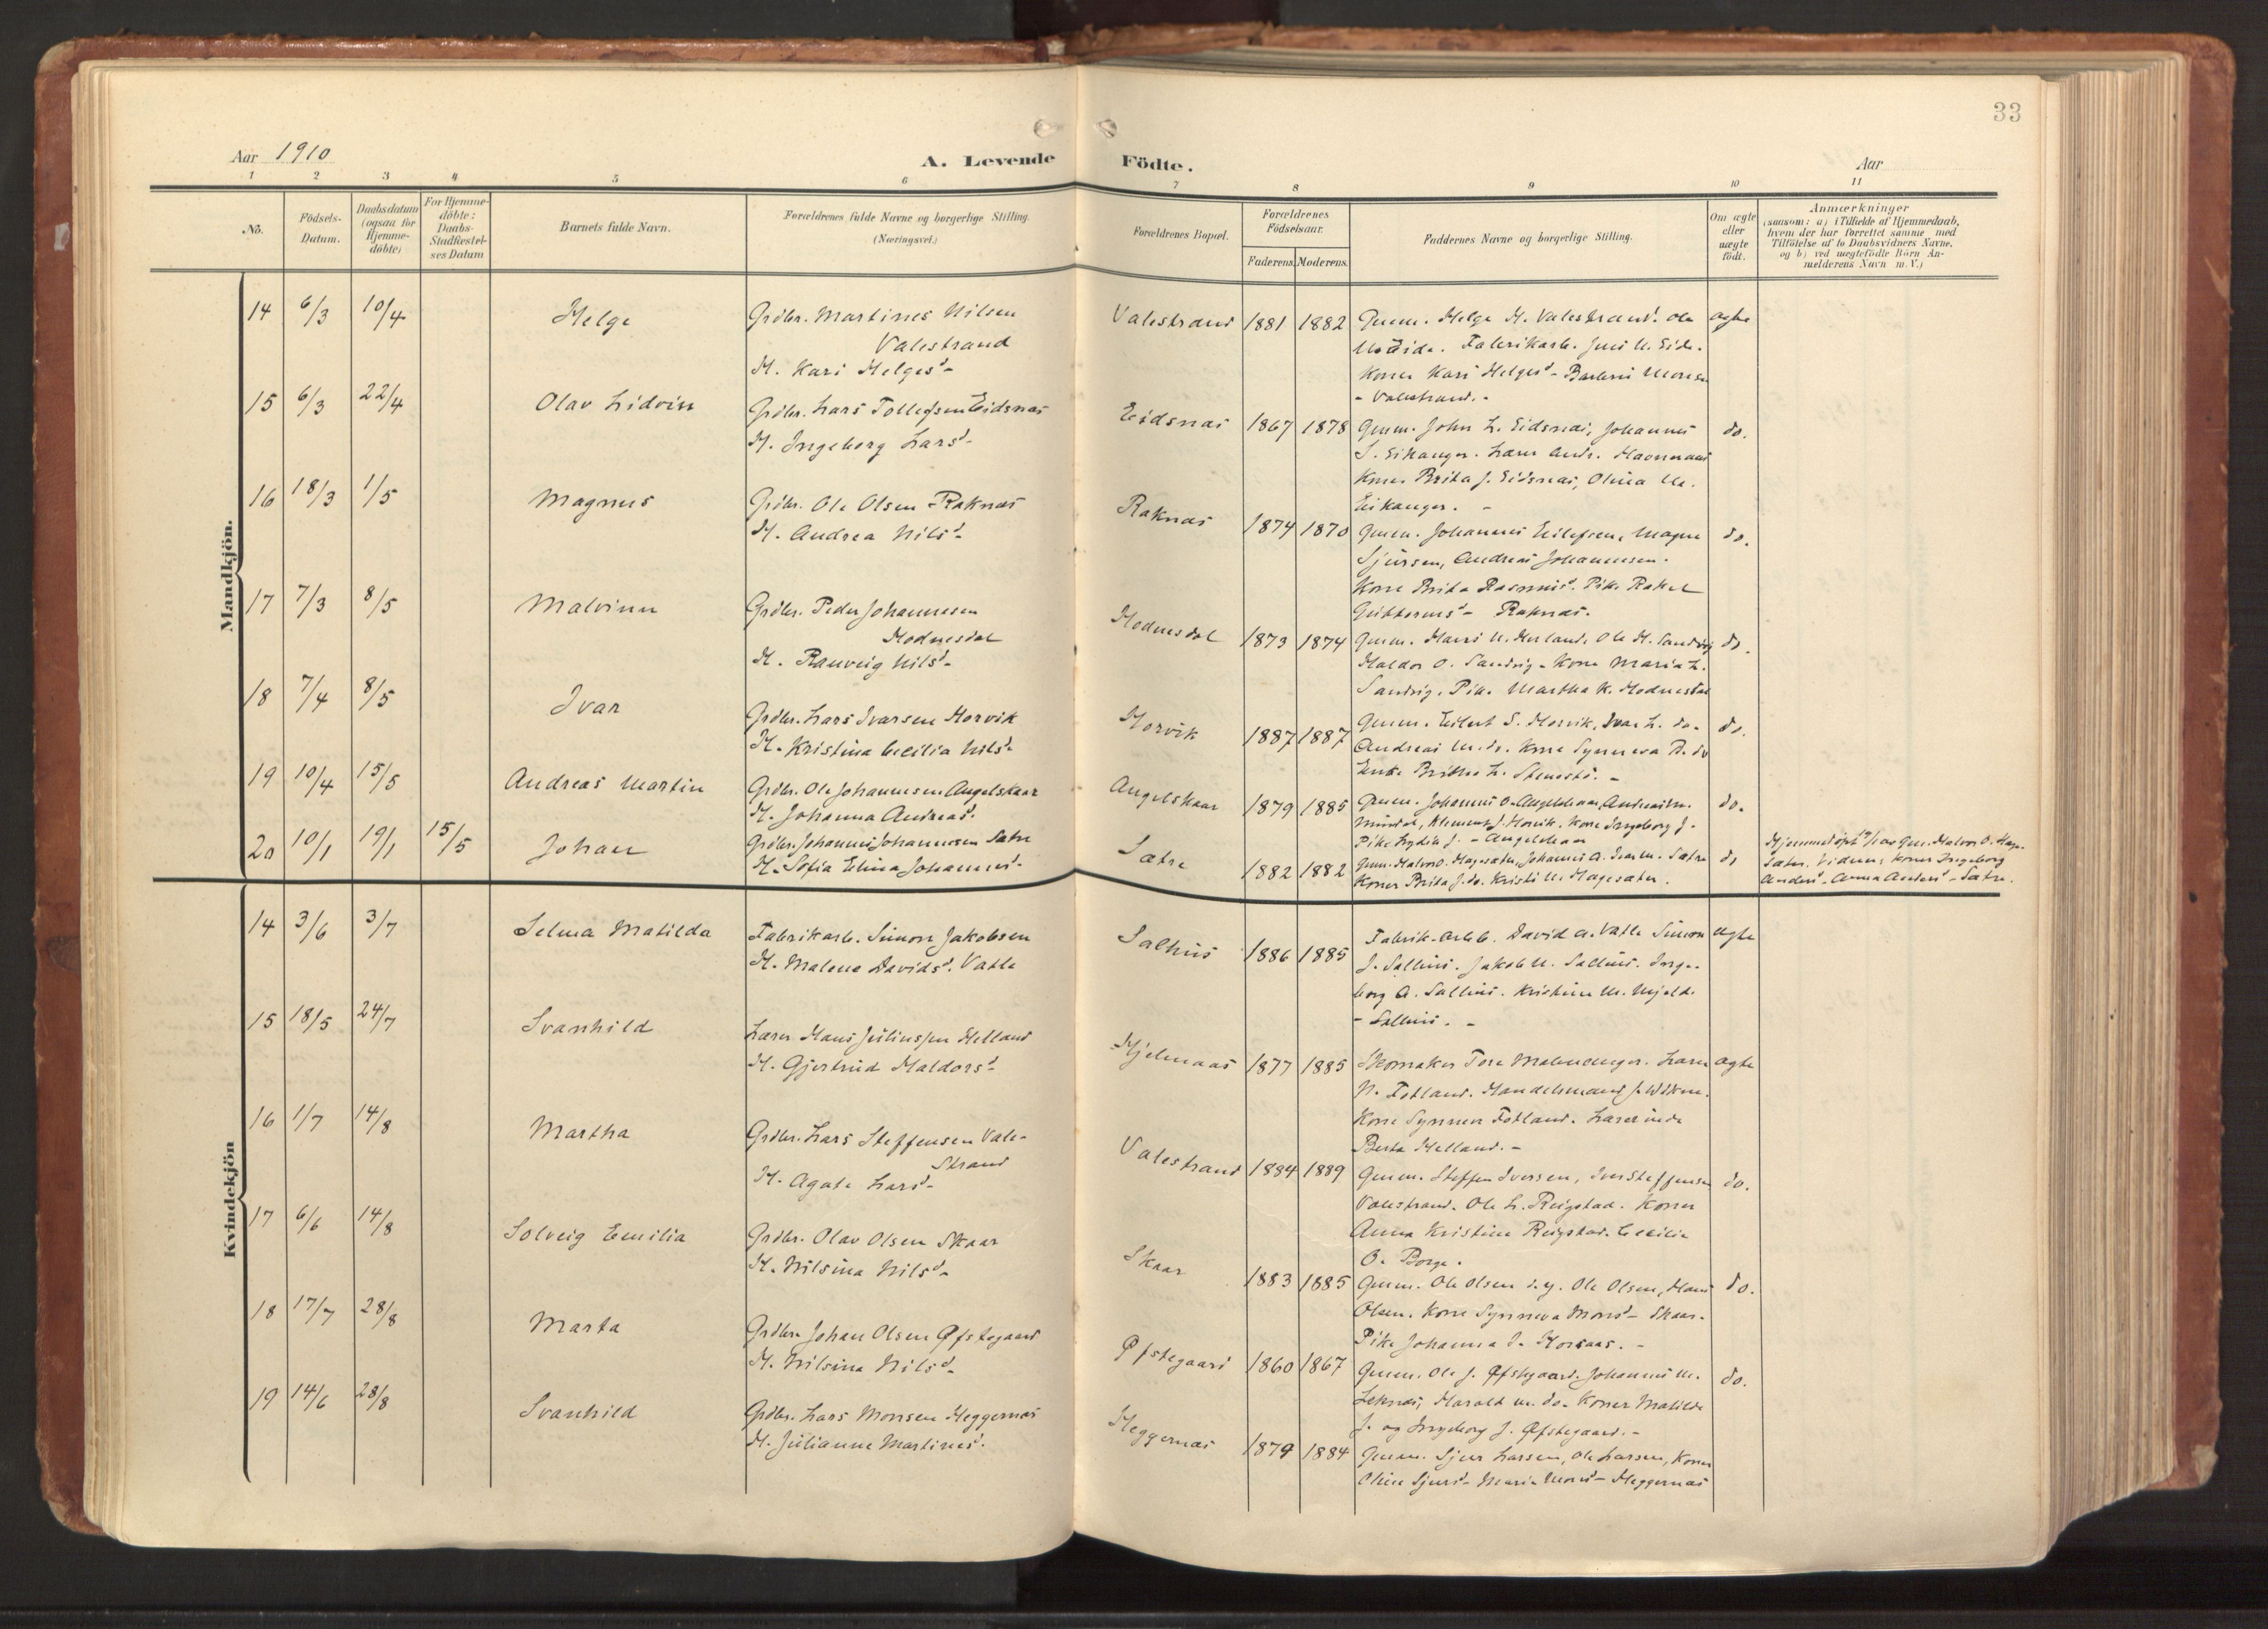 33
Aar 1910
A. Levende Födte.
Aar
1 2 3 4 5 6 7 8 9 10 11
No.
Födsels-
Datum.
Daabsdatum
(ogsaa for
Hjemme-
döbte)
For Hjemme-
döbte:
Daabs-
Stadfæstel-
ses Datum
Barnets fulde Navn.
Forældrenes fulde Navne og borgerlige Stilling.
(Næringsvei.)
Forældrenes Bopæl.
Forældrenes
Födselsaar.
Faderens. Moderens.
Faddernes Navne og borgerlige Stilling.
Om ægte
eller
uægte
födt.
Anmærkninger
(saasom: a) i Tilfælde af Hjemmedaab,
hvem der har forrettet samme med
Tilföielse af to Daabsvidners Navne,
og b) ved uægtefödte Börn An-
melderens Navn m. V.)
Mandkjön.
14 6/3 10/4 Helge
Grdbr. Martines Nilsen
Valestrand
H. Kari Helgesd-
Valestrand 1881 1882
Gmm. Helge H. Valestrand. Ole
Fabrikarb. Jens N. Eide.
Koner Kari Helgesd - Monsen
- Valestrand. -
ægte
15 6/3 22/4 Olav Lidvin
Grdbr. Lars Tollefsen Eidsnæs
H. Ingeborg Larsd-
Eidsnæs 1867 1878
Gmm. John L. Eidsnæs, Johannes
S. Eikanger. Lærer Andr. Havneraas
Koner Brita J. Eidsnæs, Olina
Eikanger. -
do.
16 18/3 1/5 Magnus
Grdbr. Ole Olsen Raknæs
H. Andrea Nilsd-
Raknæs 1874 1870
Gmm. Johannes Eilefsen, Magne
Sjursen, Andreas Johannesen.
Kone Brita Rasmusd. Pike Rakel
Guttormsd - Raknæs.
do.
17 7/3 8/5 Malvinn
Grdbr. Peder Johannesen
Hodnesdal
H. Ranveig Nilsd-
Hodnesdal 1873 1874
Gmm. Hans N. Herland, Ole H. Sandvig
Haldor O. Sandvig - Kone Maria L.
Sandvig. Pike Martha K. Hodnesdal
do.
18 7/4 8/5 Ivar
Grdbr. Lars Ivarsen Horvik
H. Kristina Cecilia Nilsd-
Horvik 1887 1887
Gmm. Eilert S. Horvik, Ivar L. do.
Andreas M. do. Kone Synneva R. do
Enke Britha L. Stenestö. -
do.
19 10/4 15/5 Andreas Martin
Grdbr. Ole Johannesen Angelskaar
H. Johanna Andreasd.
Angelskaar 1879 1885
Gmm. Johannes O. Angelskaar, Andreas
Klement J. Horvik. Kone Ingeborg J.
Pike Lydia J. - Angelskaar
do.
20 10/1 19/1 15/5 Johan
Grdbr. Johannes Johannesen Sætre
H. Sofia Elina Johannesd-
Sætre 1882 1882
Gmm. Halvor O. Hagesæter, Johannes A. Sætre
Koner Brita J. do. Kristi N. Hagesæter.
do
Hjemmedöpt 19/1 av Gm. Halvor O. Hage-
sæter. Vidner: Koner Ingeborg
Andersd - Anna Andersd - Sætre.
Kvindekjön
14 3/6 3/7 Selma Matilda
Fabrikarb. Simon Jakobsen
H. Malene Davidsd. Vatle
Salhus 1886 1885
Fabrik-arbb. David A. Vatle Simon
J. Salhus. Jakob N. Salhus. Inge-
borg A. Salhus. Kristine M. Mjelde
- Salhus. -
ægte
15 18/5 24/7 Svanhild
Lærer Hans Juliussen Helland
H. Gjertrud Haldorsd-
Hjelmaas 1877 1885
Skomaker Tore Malmanger. Lærer
N. Fotland. Handelsmand J.
Kone Synneva Fotland. Lærerinde
Berta Helland. -
ægte
16 1/7 14/8 Martha
Grdbr. Lars Steffensen Vale-
strand
H. Agate Larsd-
Valestrand 1884 1889
Gmm. Steffen Iversen, Iver Steffensen
Valestrand. Ole L. Reigstad. Koner
Anna Kristina Reigstad. Cecilie
O. Borge.
do.
17 6/6 14/8 Solveig Emilia
Grdbr. Olav Olsen Skaar
H. Nilsina Nilsd-
Skaar 1883 1885
Gmm. Ole Olsen d. y. Ole Olsen, Hans
Olsen. Kone Synneva Monsd - Skaar.
Pike Johanna J. Horsaas. -
do.
18 17/7 28/8 Marta
Grdbr. Johan Olsen Øfstegaard
H. Nilsina Nilsd-
Øfstegaard 1860 1867
Gmm. Ole J. Øfstegaard. Johannes M.
Leknæs, Harald M. do. Koner Matilde
J. og Ingeborg J. Øfstegaard. -
do.
19 14/6 28/8 Svanhild
Grdbr. Lars Monsen Heggernæs
H. Julianne Martinesd.
Heggernæs 1879 1884
Gmm. Sjur Larsen, Ole Larsen, Koner
Oline Sjursd - Maria Monsd - Heggernæs